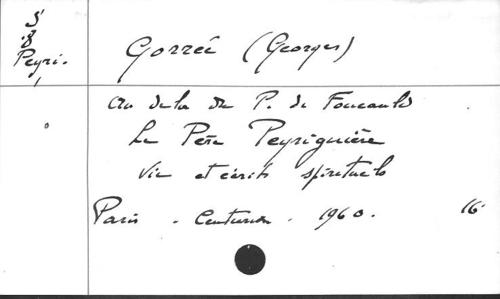 5
8
Peyri.
Gorrée (Georges)
Au delà du P. de Foucauld
Le Père Peyriguière
Vie et écrits spirituels
Paris - Centurion - 1960. 16